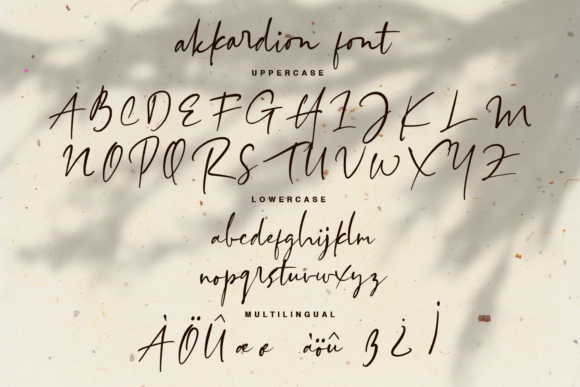 akkardion font
UPPERCASE
ABCDEFGHIJKLM
NOPQRSTUVWXYZ
LOWERCASE
abcdefghijklm
nopqrstuvwxyz
MULTILINGUAL
ÀÖÛ æ œ àöû ß ¿ ¡